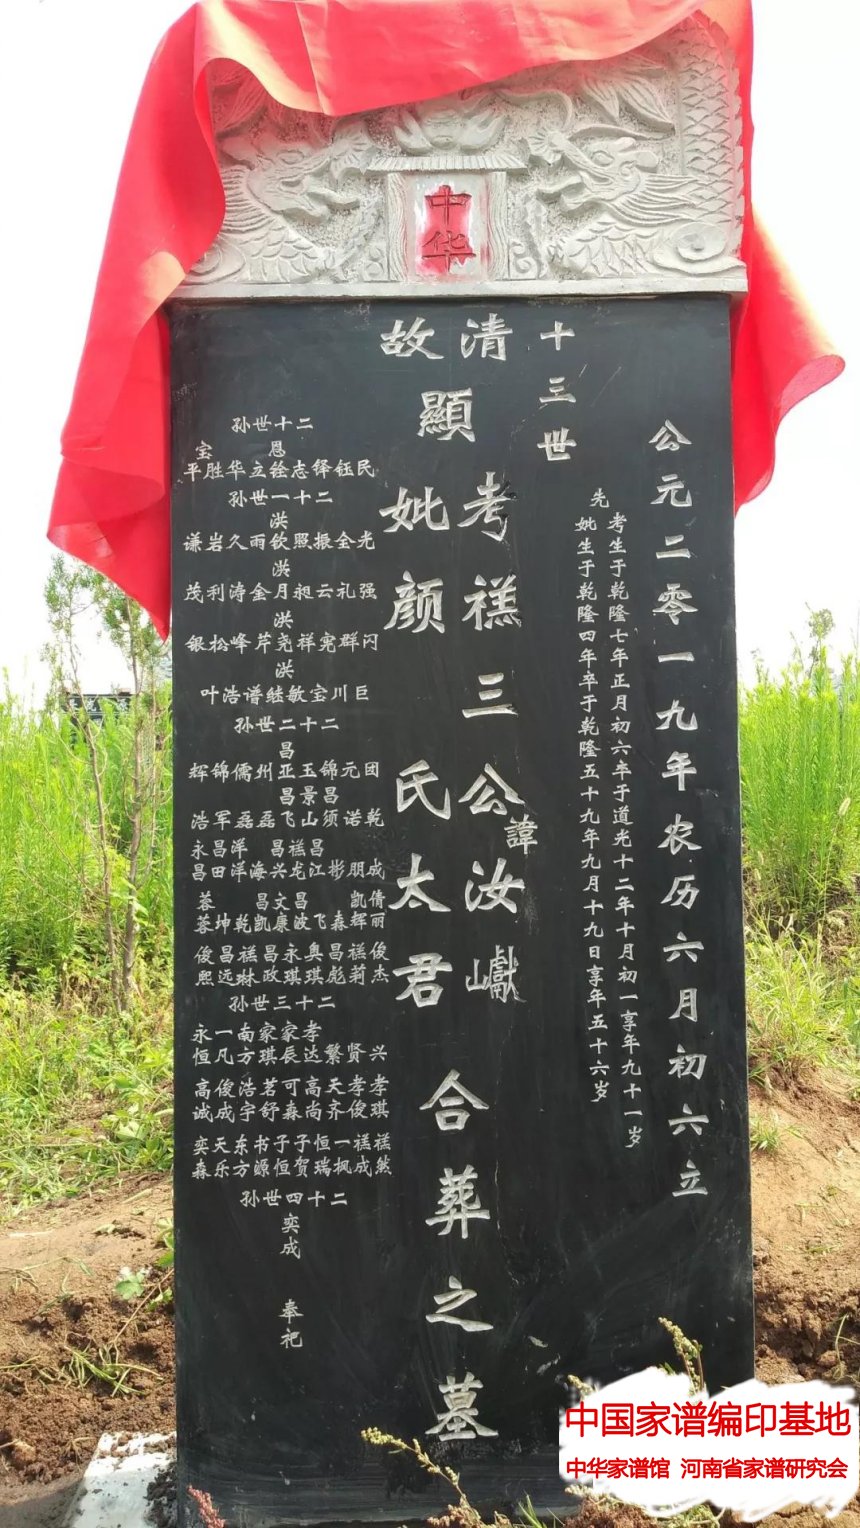 中华
公元二零一九年农历六月初六立
先考生于乾隆七年正月初六卒于道光十二年十月初一享年九十一岁
妣生于乾隆四年卒于乾隆五十九年九月十九日享年五十六岁
十三世
清故
显考禚三公諱汝巘
妣颜氏太君
合葬之墓
二十世孙
恩宝
民钰铎志铨立华胜平
二十一世孙
洪
光全振照钦雨久岩谦
洪
强礼云昶月金涛利茂
洪
闪群宪祥尧芹峰松银
洪
巨川宝敏继谱浩叶
二十二世孙
昌
团元锦玉亚州儒锦辉
昌景昌
乾诺须山飞磊磊军浩
昌禚昌洋昌永
成朋彬江龙兴海洋田昌
倩凯昌文昌蓉
丽辉森飞波康凯乾坤蓉
俊禚昌奥永昌禚昌俊
杰莉彪琪琪政林远熙
二十三世孙
孝家家南一永
兴贤繁达辰琪方凡恒
孝孝天高可茗浩俊高
琪俊齐尚森舒宇成诚
禚禚一恒子子书东天奕
然成枫瑞贺恒源方乐森
二十四世孙
奕成
奉祀
中国家谱编印基地
中华家谱馆 河南省家谱研究会